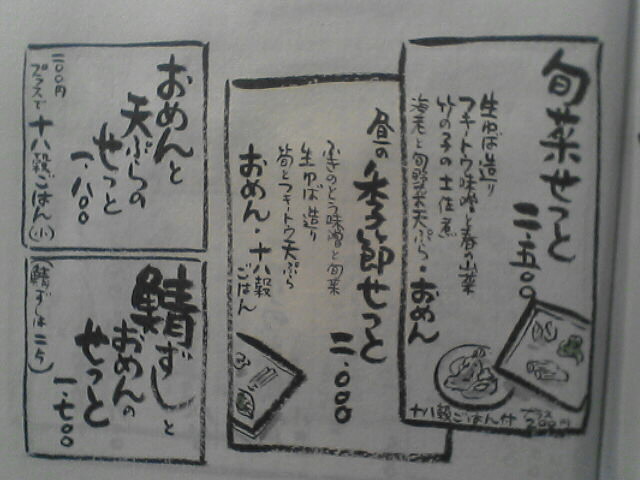 旬菜せっと
二、五〇〇
生ゆば造り
フキノトウ味噌と春の山菜
竹の子の土佐煮
海老と旬野菜天ぷら・おめん
十八穀ごはん付 プラス200円
昼の季節せっと
二、〇〇〇
ふきのとう味噌と旬菜
生ゆば造り
筍とフキノトウ天ぷら
おめん・十八穀
ごはん
おめんと
天ぷらの
せっと
一、八〇〇
二〇〇円
プラスで十八穀ごはん(小)
鯖ずしと
おめんの
せっと
一、七〇〇
(鯖ずしは二切)